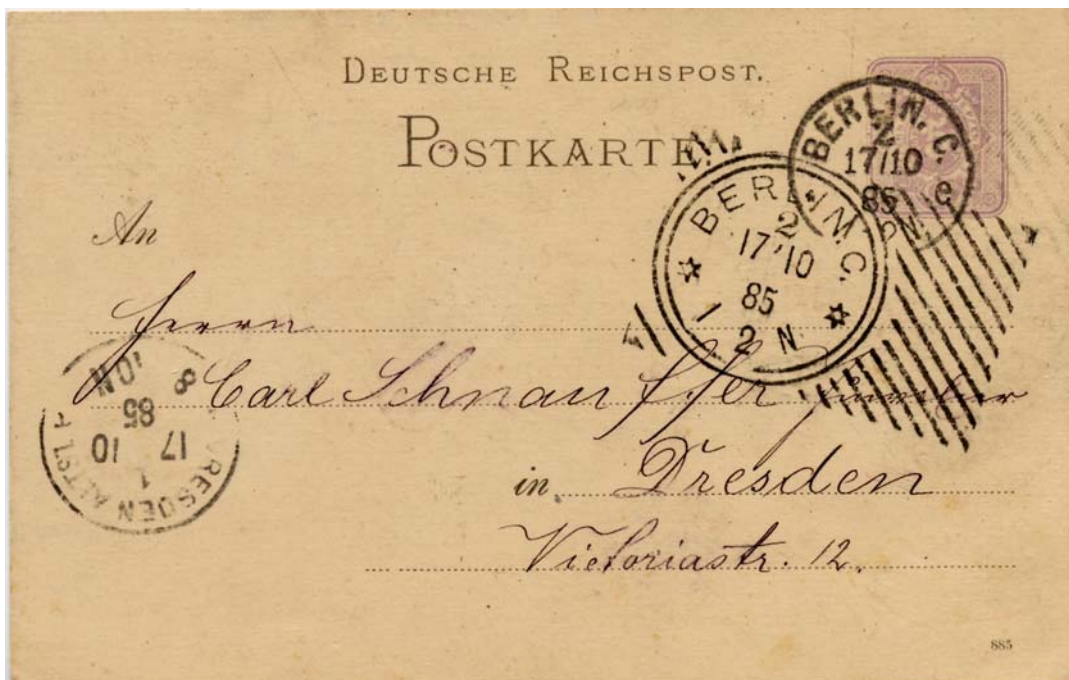 DEUTSCHE REICHSPOST.
POSTKARTE
BERLIN. C.
2
17/10
85
e
BERLIN. C.
2
17/10
85
1 2 N
An
Herrn
Carl Schnauffer
in Dresden
Victoriastr. 12.
DRESDEN ALTST.
1
17 10
85
8 10N
885